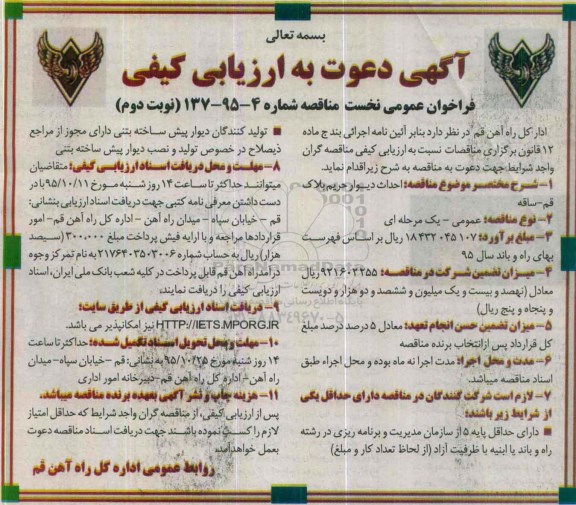 بسمه تعالی
آگهی دعوت به ارزیابی کیفی
فراخوان عمومی نخست مناقصه شماره ۴-۹۵-۱۳۷ (نوبت دوم)
ادار کل راه آهن قم در نظر دارد بنابر آئین نامه اجرائی بند ج ماده
۱۲ قانون برگزاری مناقصات نسبت به ارزیابی کیفی مناقصه گران
واجد شرایط جهت دعوت به مناقصه به شرح زیر اقدام نماید.
۱-شرح مختصر موضوع مناقصه: احداث دیوار حریم پلاک
قم-ساقه
۲-نوع مناقصه: عمومی - یک مرحله ای
۳-مبلغ برآورد: ۱۸۴۳۲۰۴۵۱۰۷ ریال بر اساس فهرست
بهای راه و باند سال ۹۵
۴-میزان تضمین شرکت در مناقصه: ۹۲۱۶۰۲۲۵۵ ریال
معادل (نهصد و بیست و یک میلیون و ششصد و دو هزار و دویست
و پنجاه و پنج ریال)
۵-میزان تضمین حسن انجام تعهد: معادل ۵ درصد درصد مبلغ
کل قرارداد پس ازانتخاب برنده مناقصه
۶-مدت و محل اجرا: مدت اجرا نه ماه بوده و محل اجراء طبق
اسناد مناقصه میباشد.
۷-لازم است شرکت کنندگان در مناقصه دارای حداقل یکی
از شرایط زیر باشند:
■ دارای حداقل پایه ۵ از سازمان مدیریت و برنامه ریزی در رشته
راه و باند یا ابنیه با ظرفیت آزاد (از لحاظ تعداد کار و مبلغ)
■ تولید کنندگان دیوار پیش ساخته بتنی دارای مجوز از مراجع
ذیصلاح در خصوص تولید و نصب دیوار پیش ساخته بتنی
۸-مهلت و محل دریافت اسناد ارزیابی کیفی: متقاضیان
میتوانند حداکثر تا ساعت ۱۴ روز شنبه مورخ ۹۵/۱۰/۱۱ با در
دست داشتن معرفی نامه کتبی جهت دریافت اسناد ارزیابی بنشانی:
قم - خیابان سپاه - میدان راه آهن - اداره کل راه آهن قم-امور
قراردادها مراجعه و با ارایه فیش پرداخت مبلغ ۳۰۰,۰۰۰ (سیصد
هزار) ریال به حساب شماره ۲۱۷۶۴۰۳۵۰۳۰۰۶ به نام تمرکز وجوه
درآمد راه آهن قم قابل پرداخت در کلیه شعب بانک ملی ایران، اسناد
ارزیابی کیفی را دریافت نمایند.
۹-دریافت اسناد ارزیابی کیفی از طریق سایت:
HTTP://IETS.MPORG.IR نیز امکانپذیر می باشد.
۱۰-مهلت و محل تحویل اسناد تکمیل شده: حداکثر تا ساعت
۱۴ روز شنبه مورخ ۹۵/۱۰/۲۵ به نشانی: قم -خیابان سپاه-میدان
راه آهن- اداره کل راه آهن قم-دبیرخانه امور اداری
۱۱-هزینه چاپ و نشر آگهی بعهده برنده مناقصه میباشد.
پس از ارزیابی کیفی، از مناقصه گران واجد شرایط که حداقل امتیاز
لازم را کسب نموده باشند جهت دریافت اسناد مناقصه دعوت
بعمل خواهد آمد.
روابط عمومی اداره کل راه آهن قم